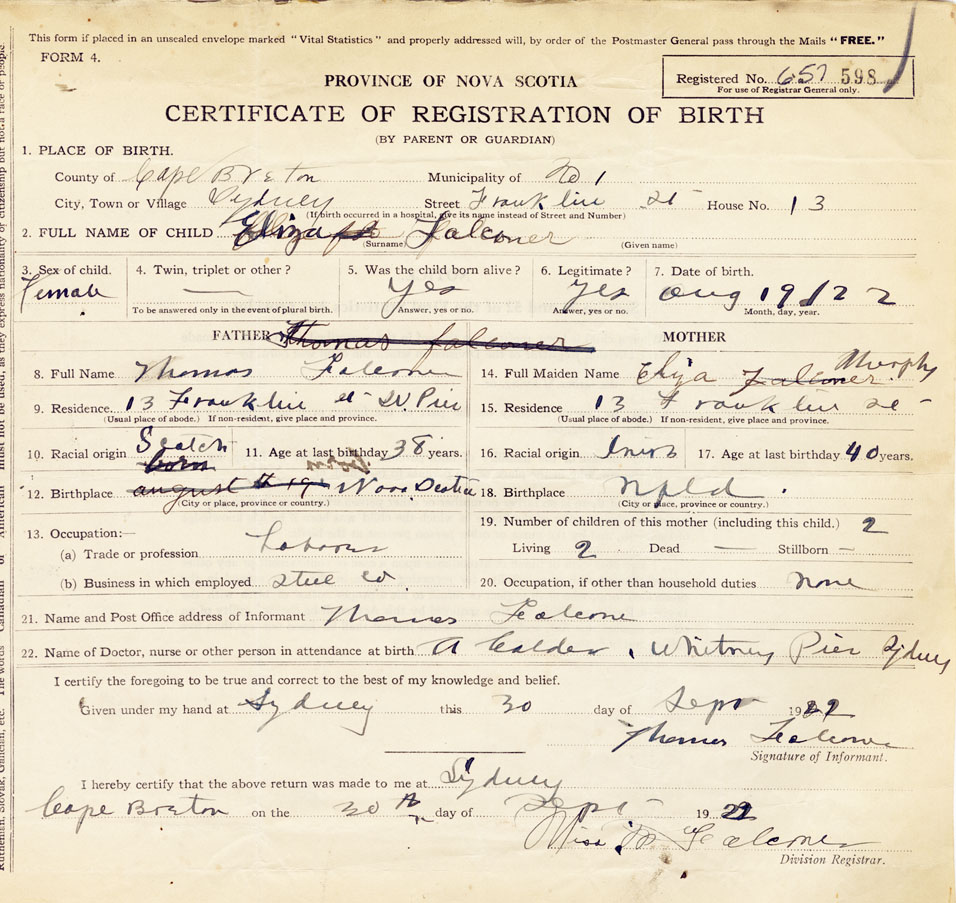 This form if placed in an unsealed envelope marked "Vital Statistics" and properly addressed will, by order of the Postmaster General pass through the Mails "FREE."
FORM 4.
Registered No. 657 598
For use of Registrar General only.
PROVINCE OF NOVA SCOTIA
CERTIFICATE OF REGISTRATION OF BIRTH
(BY PARENT OR GUARDIAN)
1. PLACE OF BIRTH.
County of Cape Breton Municipality of No 1
City, Town or Village Sydney Street Franklin St House No. 13
(If birth occurred in a hospital, give its name instead of Street and Number)
2. FULL NAME OF CHILD Falconer
(Surname) (Given name)
3. Sex of child. 4. Twin, triplet or other? 5. Was the child born alive? 6. Legitimate? 7. Date of birth.
Female — Yes Yes Aug 19 1922
To be answered only in the event of plural birth. Answer, yes or no. Answer, yes or no. Month, day, year.
FATHER Thomas falconer MOTHER
8. Full Name Thomas Falconer 14. Full Maiden Name Eliza Falconer Murphy
9. Residence 13 Franklin st W. Pier 15. Residence 13 Franklin st
(Usual place of abode.) If non-resident, give place and province. (Usual place of abode.) If non-resident, give place and province.
10. Racial origin Scotch born 11. Age at last birthday 38 years. 16. Racial origin Irish 17. Age at last birthday 40 years.
born
12. Birthplace august Nova Scotia 18. Birthplace Nfld.
(City or place, province or country.) (City or place, province or country.)
13. Occupation:— 19. Number of children of this mother (including this child.) 2
(a) Trade or profession Laborer Living 2 Dead — Stillborn —
(b) Business in which employed steel co 20. Occupation, if other than household duties none
21. Name and Post Office address of Informant Thomas Falconer
22. Name of Doctor, nurse or other person in attendance at birth A Calder, Whitney Pier Sydney
I certify the foregoing to be true and correct to the best of my knowledge and belief.
Given under my hand at Sydney this 30 day of Sept 1922
Thomas Falconer
Signature of Informant.
I hereby certify that the above return was made to me at Sydney
Cape Breton on the 30th day of Sept 1922
Miss M Falconer
Division Registrar.